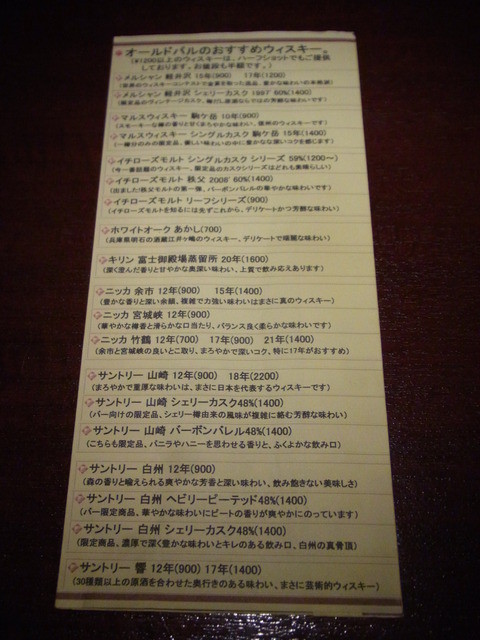 オールドパルのおすすめウィスキー。
(¥1200以上のウィスキーは、ハーフショットでもご提供
しております。お値段も半額です。)
メルシャン 軽井沢 15年(900) 17年(1200)
メルシャン 軽井沢 シェリーカスク 1997 60%(1400)
マルスウィスキー 駒ケ岳 10年(900)
(スモーキーな樽の香りと甘くまろやかな味わい、信州のウィスキーです)
マルスウィスキー シングルカスク 駒ケ岳 15年(1400)
(一樽分のみの限定品、優しい味わいの中に豊かな深いコクを感じます)
イチローズモルト シングルカスク シリーズ 59%(1200~)
(今一番話題のウィスキー、限定品のカスクシリーズはどれも素晴らしい)
イチローズモルト 秩父 2008' 60%(1400)
(出ました!秩父モルトの第一弾、バーボンバレルの華やかな味わいです)
イチローズモルト リーフシリーズ(900)
(イチローズモルトを知るには先ずこれから、デリケートかつ芳醇な味わい)
ホワイトオーク あかし(700)
(兵庫県明石の酒蔵江井ヶ嶋のウィスキー、デリケートで端麗な味わい)
キリン 富士御殿場蒸留所 20年(1600)
(深く澄んだ香りと甘やかな奥深い味わい、上質で飲み応えあります)
ニッカ 余市 12年(900) 15年(1400)
(豊かな香りと深い余韻、複雑で力強い味わいはまさに真のウィスキー)
ニッカ 宮城峡 12年(900)
(華やかな樽香と滑らかな口当たり、バランス良く柔らかな味わい)
ニッカ 竹鶴 12年(700) 17年(900) 21年(1400)
(余市と宮城峡の良いとこ取り、まろやかで深いコク、特に17年がおすすめ)
サントリー 山崎 12年(900) 18年(2200)
(まろやかで重厚な味わいは、まさに日本を代表するウィスキーです)
サントリー 山崎 シェリーカスク48%(1400)
(バー向けの限定品、シェリー樽由来の風味が複雑に絡む芳醇な味わい)
サントリー 山崎 バーボンバレル48%(1400)
(こちらも限定品、バニラやハニーを思わせる香りと、ふくよかな飲み口)
サントリー 白州 12年(900)
(森の香りと喩えられる爽やかな芳香と深い味わい、飲み飽きない美味しさ)
サントリー 白州 ヘビリーピーテッド48%(1400)
(バー限定商品、華やかな味わいにピートの香りが爽やかにのっています)
サントリー 白州 シェリーカスク48%(1400)
(限定商品、濃厚で深く豊かな味わいとキレのある飲み口、白州の真骨頂)
サントリー 響 12年(900) 17年(1400)
(30種類以上の原酒を合わせた奥行きのある味わい、まさに芸術的ウィスキー)